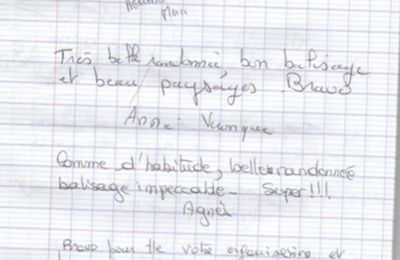 Très belle randonnée, bon balisage
et beau paysages. Bravo
Anne Véronique
Comme d'habitude, belle randonnée
balisage impeccable - Super!!!
Agnès
Bravo pour tte votre organisation et